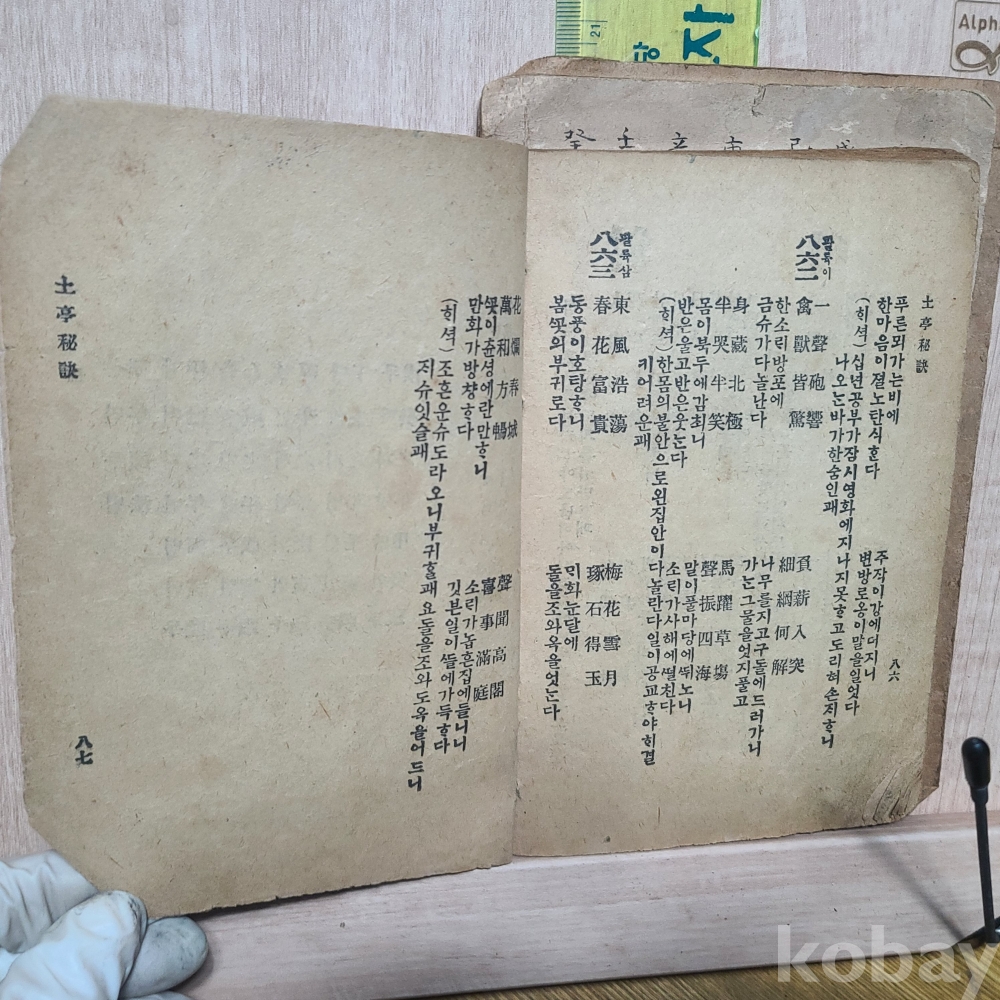 土亭秘訣
八六
푸른뫼가는비에 주작이강에더지니
한마음이졀노탄식ᄒᆞᆫ다 변방로옹이말을일엇다
(ᄒᆡ셕) 십년공부가잠시영화에지나지못ᄒᆞ고도리혀손ᄌᆡᄒᆞ니
나오는바가한숨인괘
팔륙이
八六二
一聲砲響 負薪入突
禽獸皆驚 細網何解
한소리방포에 나무를지고구돌에드러가니
금슈가다놀난다 가는그물을엇지풀고
身藏北極 馬躍草場
半哭半笑 聲振四海
몸이북두에감최니 말이풀마당에ᄯᅱ노니
반은울고반은웃는다 소리가사해에떨친다
(ᄒᆡ셕) 한몸의불안으로왼집안이다놀란다일이공교ᄒᆞ야ᄒᆡ결
키어려운괘
팔륙삼
八六三
東風浩蕩 梅花雪月
春花富貴 琢石得玉
동풍이호탕ᄒᆞ니 ᄆᆡ화눈달에
봄ᄭᅩᆺ의부귀로다 돌을ᄶᅩ와옥을엇는다
花爛春城 聲聞高閣
萬和方暢 喜事滿庭
ᄭᅩᆺ이츈셩에란만ᄒᆞ니 소리가놉흔집에들니니
만화가방챵ᄒᆞ다 깃분일이ᄯᅳᆯ에가득ᄒᆞ다
(ᄒᆡ셕) 조흔운슈도라오니부귀ᄒᆞᆯ괘요돌을ᄶᅩ와도옥을어드니
ᄌᆡ슈잇슬괘
土亭秘訣
八七
癸 壬 辛
21
자
Alph
kobay